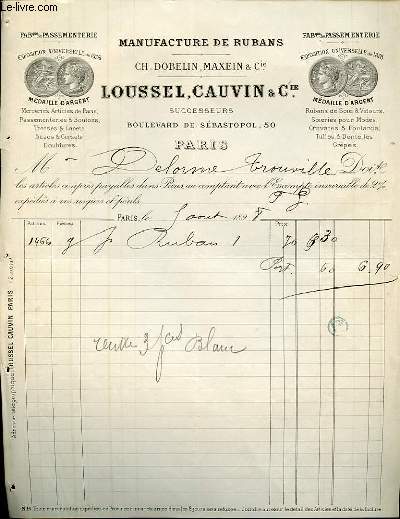 FABque DE PASSEMENTERIE
EXPOSITION UNIVERSELLE DE 1878
MÉDAILLE D'ARGENT
Merceries, Articles de Paris,
Passementeries & Boutons,
Tresses & Lacets
Doublures.
MANUFACTURE DE RUBANS
CH. DOBELIN, MAXEIN & Cie
LOUSSEL, CAUVIN & CIE
SUCCESSEURS
BOULEVARD DE SÉBASTOPOL, 50
PARIS
FABque DE PASSEMENTERIE
EXPOSITION UNIVERSELLE DE 1878
MÉDAILLE D'ARGENT
Rubans de Soie & Velours,
Soieries pour Modes,
Cravates & Foulards,
Tulles & Dentelles
Crêpes.
M Delorme Trouville Doit
les articles ci-après payables dans Paris au comptant avec l'Escompte invariable de 2%
expédiés à vos risques et périls.
PARIS, le 1 août 189
Patrons Pièces Prix
1466 9 Ruban 1 70 6 30
Port 60 6.90
rendu 3 pces Blanc
Adresse télégraphique: LOUSSEL CAUVIN PARIS